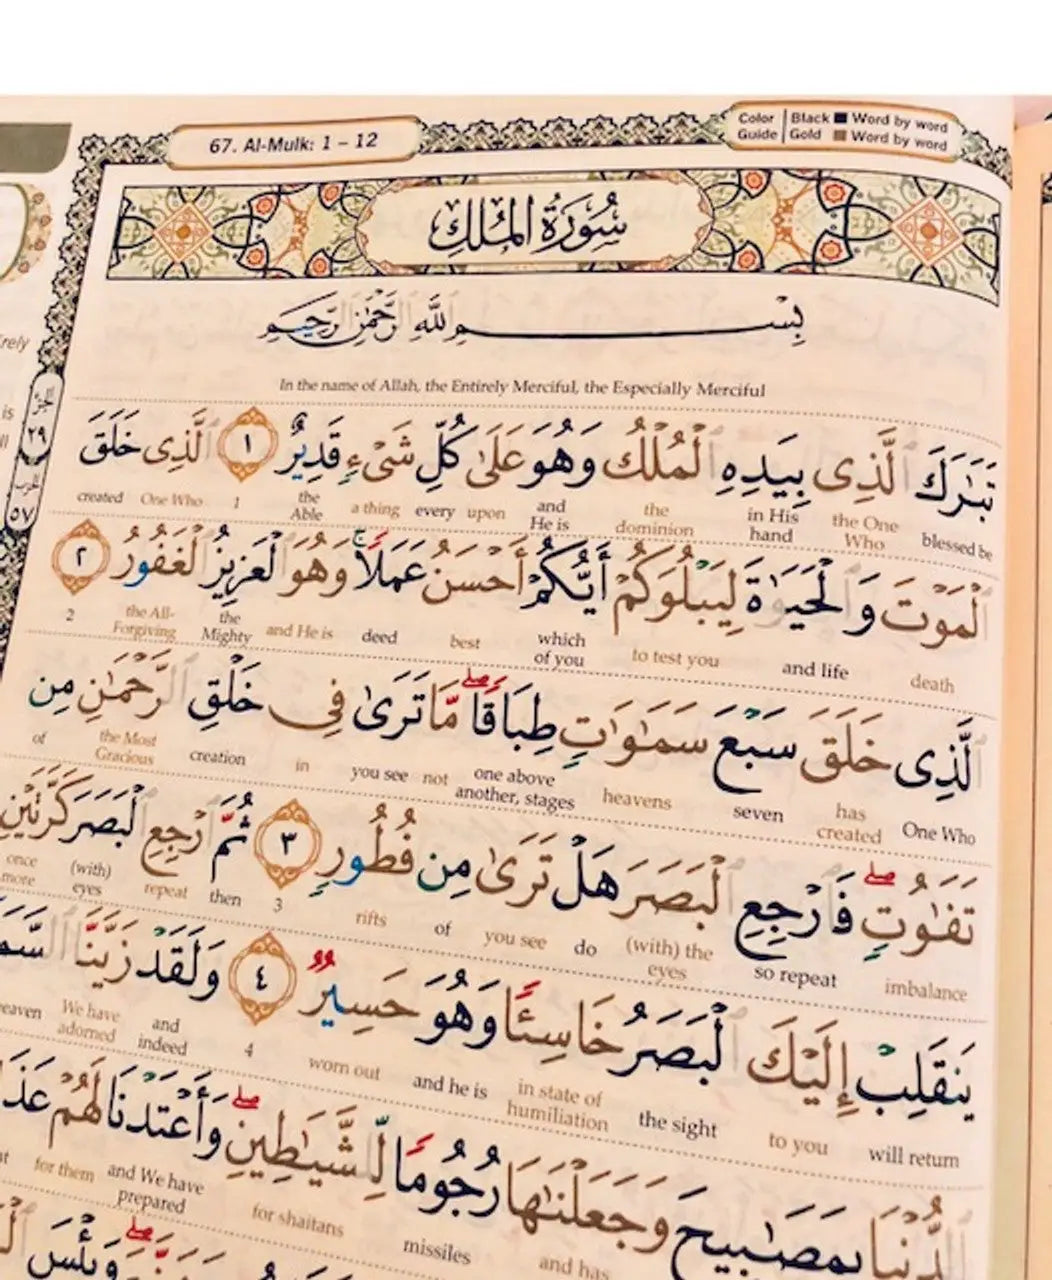 67. Al-Mulk: 1 – 12
Color Guide | Black ■ Word by word
Gold ■ Word by word
سُورَةُ الْمُلْكِ
بِسْمِ اللَّهِ الرَّحْمَٰنِ الرَّحِيمِ
In the name of Allah, the Entirely Merciful, the Especially Merciful
تَبَٰرَكَ ٱلَّذِى بِيَدِهِ ٱلْمُلْكُ وَهُوَ عَلَىٰ كُلِّ شَىْءٍ قَدِيرٌ ١ ٱلَّذِى خَلَقَ
blessed be the One Who in His hand the dominion and He is upon every a thing the Able 1 One Who created
ٱلْمَوْتَ وَٱلْحَيَوٰةَ لِيَبْلُوَكُمْ أَيُّكُمْ أَحْسَنُ عَمَلًا ۚ وَهُوَ ٱلْعَزِيزُ ٱلْغَفُورُ ٢
death and life to test you which of you best deed and He is the Mighty the All-Forgiving 2
ٱلَّذِى خَلَقَ سَبْعَ سَمَٰوَٰتٍ طِبَاقًا ۖ مَّا تَرَىٰ فِى خَلْقِ ٱلرَّحْمَٰنِ مِن
One Who has created seven heavens one above another, stages not you see in creation the Most Gracious of
تَفَٰوُتٍ ۖ فَٱرْجِعِ ٱلْبَصَرَ هَلْ تَرَىٰ مِن فُطُورٍ ٣ ثُمَّ ٱرْجِعِ ٱلْبَصَرَ كَرَّتَيْنِ
imbalance so repeat (with) the eyes do you see of rifts 3 then repeat (with) eyes once more
يَنقَلِبْ إِلَيْكَ ٱلْبَصَرُ خَاسِئًا وَهُوَ حَسِيرٌ ٤ وَلَقَدْ زَيَّنَّا
will return to you the sight in state of humiliation and he is worn out 4 and indeed We have adorned
ٱلدُّنْيَا بِمَصَٰبِيحَ وَجَعَلْنَٰهَا رُجُومًا لِّلشَّيَٰطِينِ ۖ وَأَعْتَدْنَا لَهُمْ
and has missiles for shaitans and We have prepared for them
وَبِئْسَ
الجزء ٢٩
الحزب ٥٧